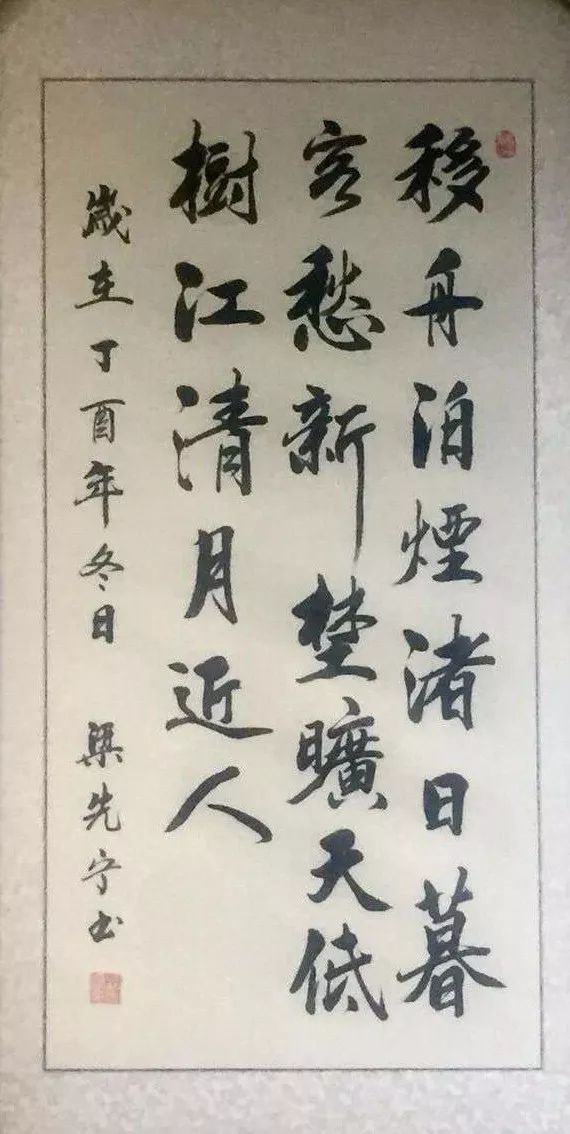 移舟泊煙渚日暮
客愁新埜曠天低
樹江清月近人
歲在丁酉年冬日 梁先宁书